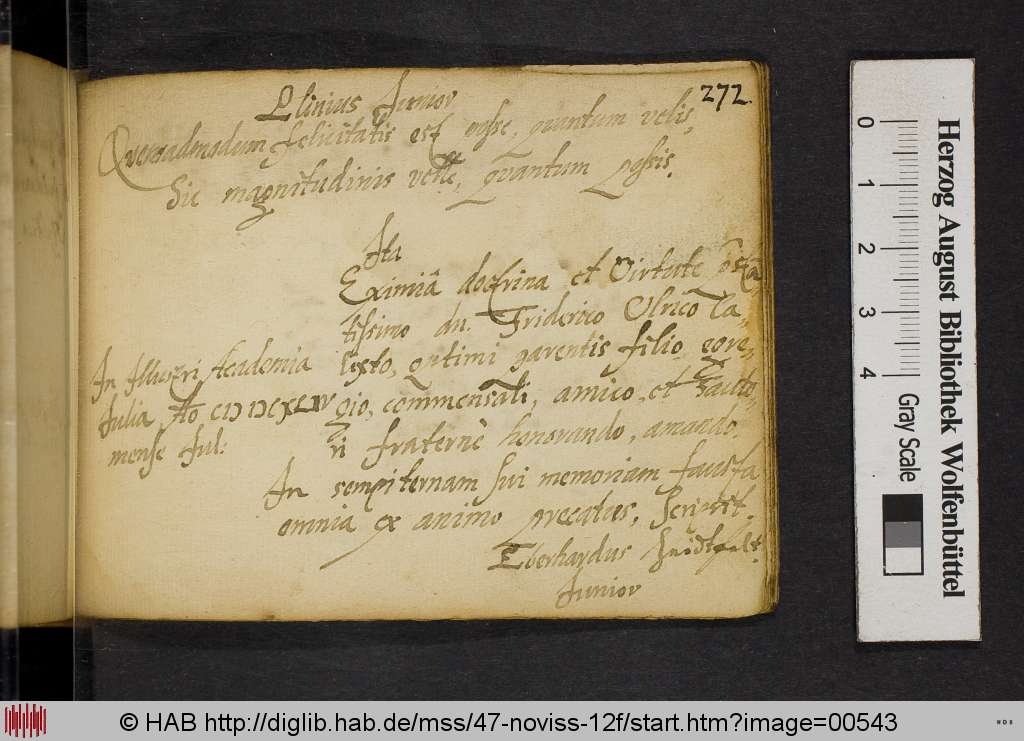 272.
Plinius Junior
Quemadmodum felicitatis est posse, quantum velis,
Sic magnitudinis velle, quantum possis.
Ita
Eximiâ doctrina et Virtute præsta
tissimo dn. Friderico Ulrico Ca-
lixto, optimi parentis filio, egre-
gio, commensali, amico, et Fauto-
ri fraternè honorando, amando.
In sempiternam sui memoriam fausta
omnia ex animo precatus, Scripsit.
Eberhardus
Junior
In Illustri Academia
Julia Ao
mense Jul:
Herzog August Bibliothek Wolfenbüttel
Gray Scale
0 1 2 3 4
© HAB http://diglib.hab.de/mss/47-noviss-12f/start.htm?image=00543